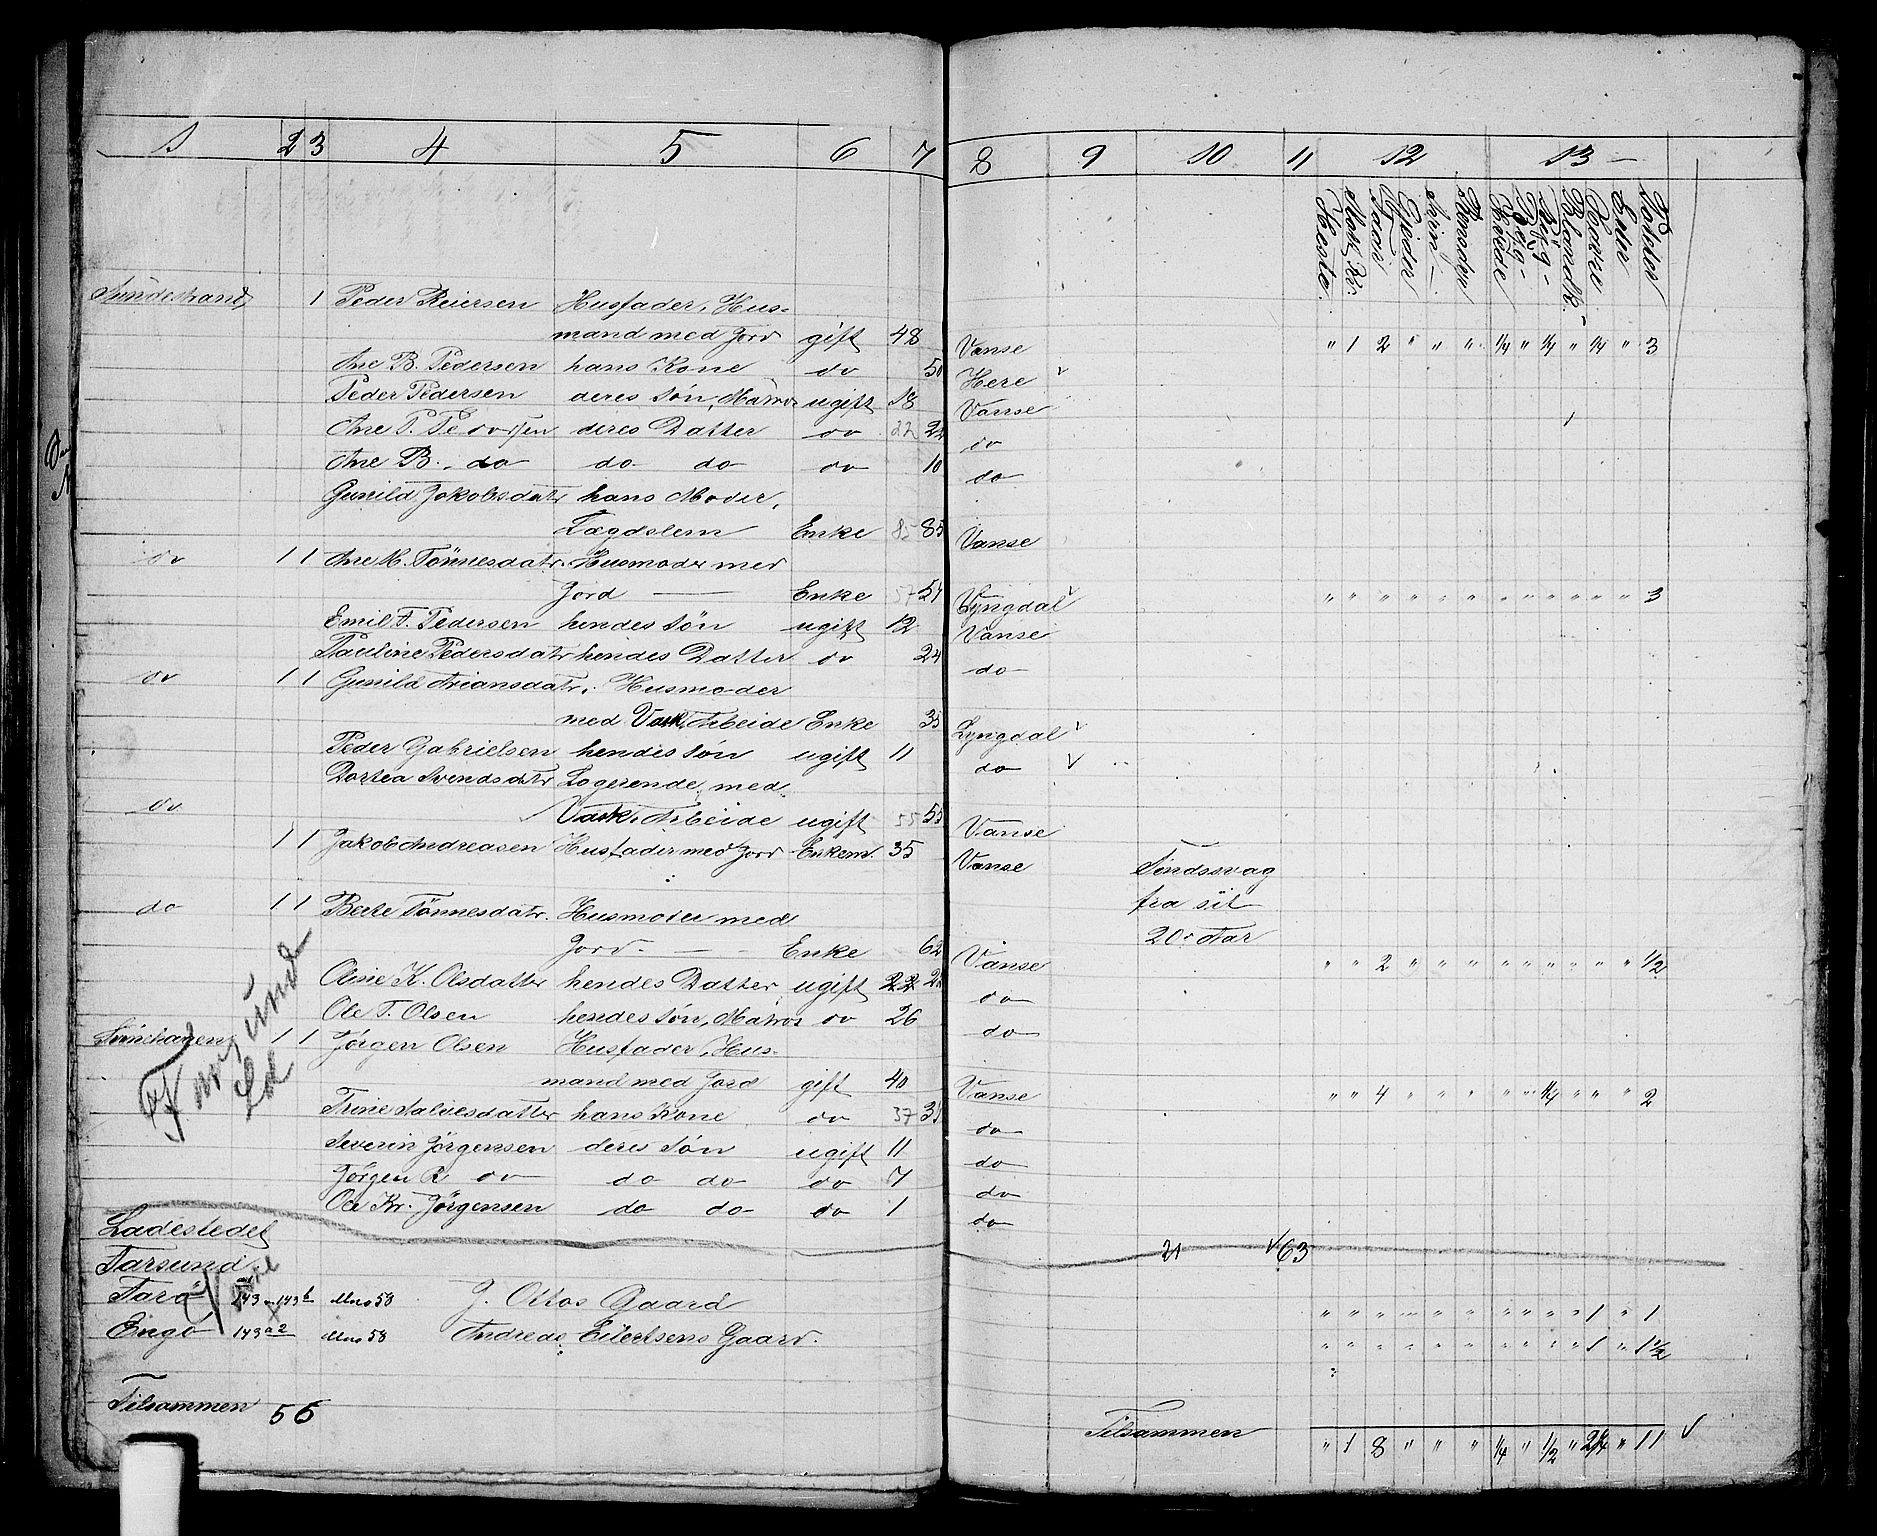 1 2 3 4 5 6 7 8 9 10 11 12 13
Heste Faar Gjeder Svin Rensdyr Hvede Rug Byg Blandk. Havre Erter Potetes
Sundestrand 1 Peder Reiersen Husfader, Hus-
mand med Jord gift 48 Vanse " 1 2 " " " 1/4 " 1/4 " 1/4 " 3
Ane B. Pedersen hans Kone do 50 Here
Peder Pedersen deres Søn, Matros ugift 18 Vanse
Ane P. Pedersen deres Datter do 22 22 do
Ane B. do do do do 10 do
Gunild Jakobsdatr hans Moder,
Lægdslem Enke 85 85 Vanse
do 1 1 Ane M. Tönnesdatr. Husmoder med
Jord — Enke 57 57 Lyngdal " " " " " " " " " " " " 3
Emil T. Pedersen hendes Søn ugift 12 Vanse
Pauline Pedersdatr hendes Datter do 24 do
do 1 1 Gunild Ariansdatr. Husmoder
med Vask, Arbeide Enke 35 Lyngdal
Peder Gabrielsen hendes Søn ugift 11 do
Dortea Svendsdatr Logerende, med
do Vask, Arbeide ugift 55 55 Vanse
1 1 Jakob Andreasen Husfader med Jord Enkem. 35 Vanse Sindssvag
fra sit
do 1 1 Berte Tönnesdatr. Husmoder med
20de Aar
Jord. — Enke 62 Vanse " " 2 " " " " " " " " " 1/2
Oline K. Olsdatter hendes Datter ugift 22 22 do
Ole T. Olsen hendes Søn, Matros do 26 do
1 1 Jørgen Olsen Husfader, Hus-
mand med Jord gift 40 Vanse " " 4 " " " " " 1/4 " " " 2
Trine Salvesdatter hans Kone do 37 37 do
Severin Jørgensen deres Søn ugift 11 do
Jørgen R do do do do 7 do
Ole Kr. Jørgensen do do do 1 do
Farsund
Ld
21 63
Ladestedet
Farsund
Farø 143 143b Mno 58 J. Ottos Gaard " " " " " " " " " " 1 " 1
Engø 143a2 Mno 58 Andreas Eilertsens Gaard. " " " " " " " " " " 1 " 1 1/2
Tilsammen 56
Tilsammen " 1 8 " " " 1/4 " 1/2 " 2 1/4 " 11